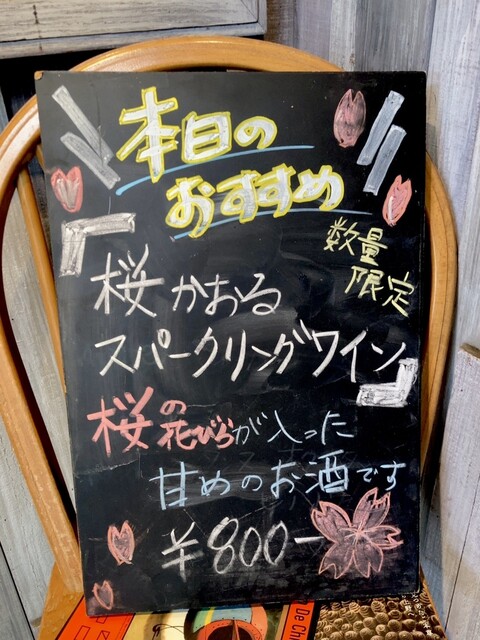 本日の
おすすめ
数量
限定
桜かおる
スパークリングワイン
桜の花びらが入った
甘めのお酒です
¥800-
De Ch